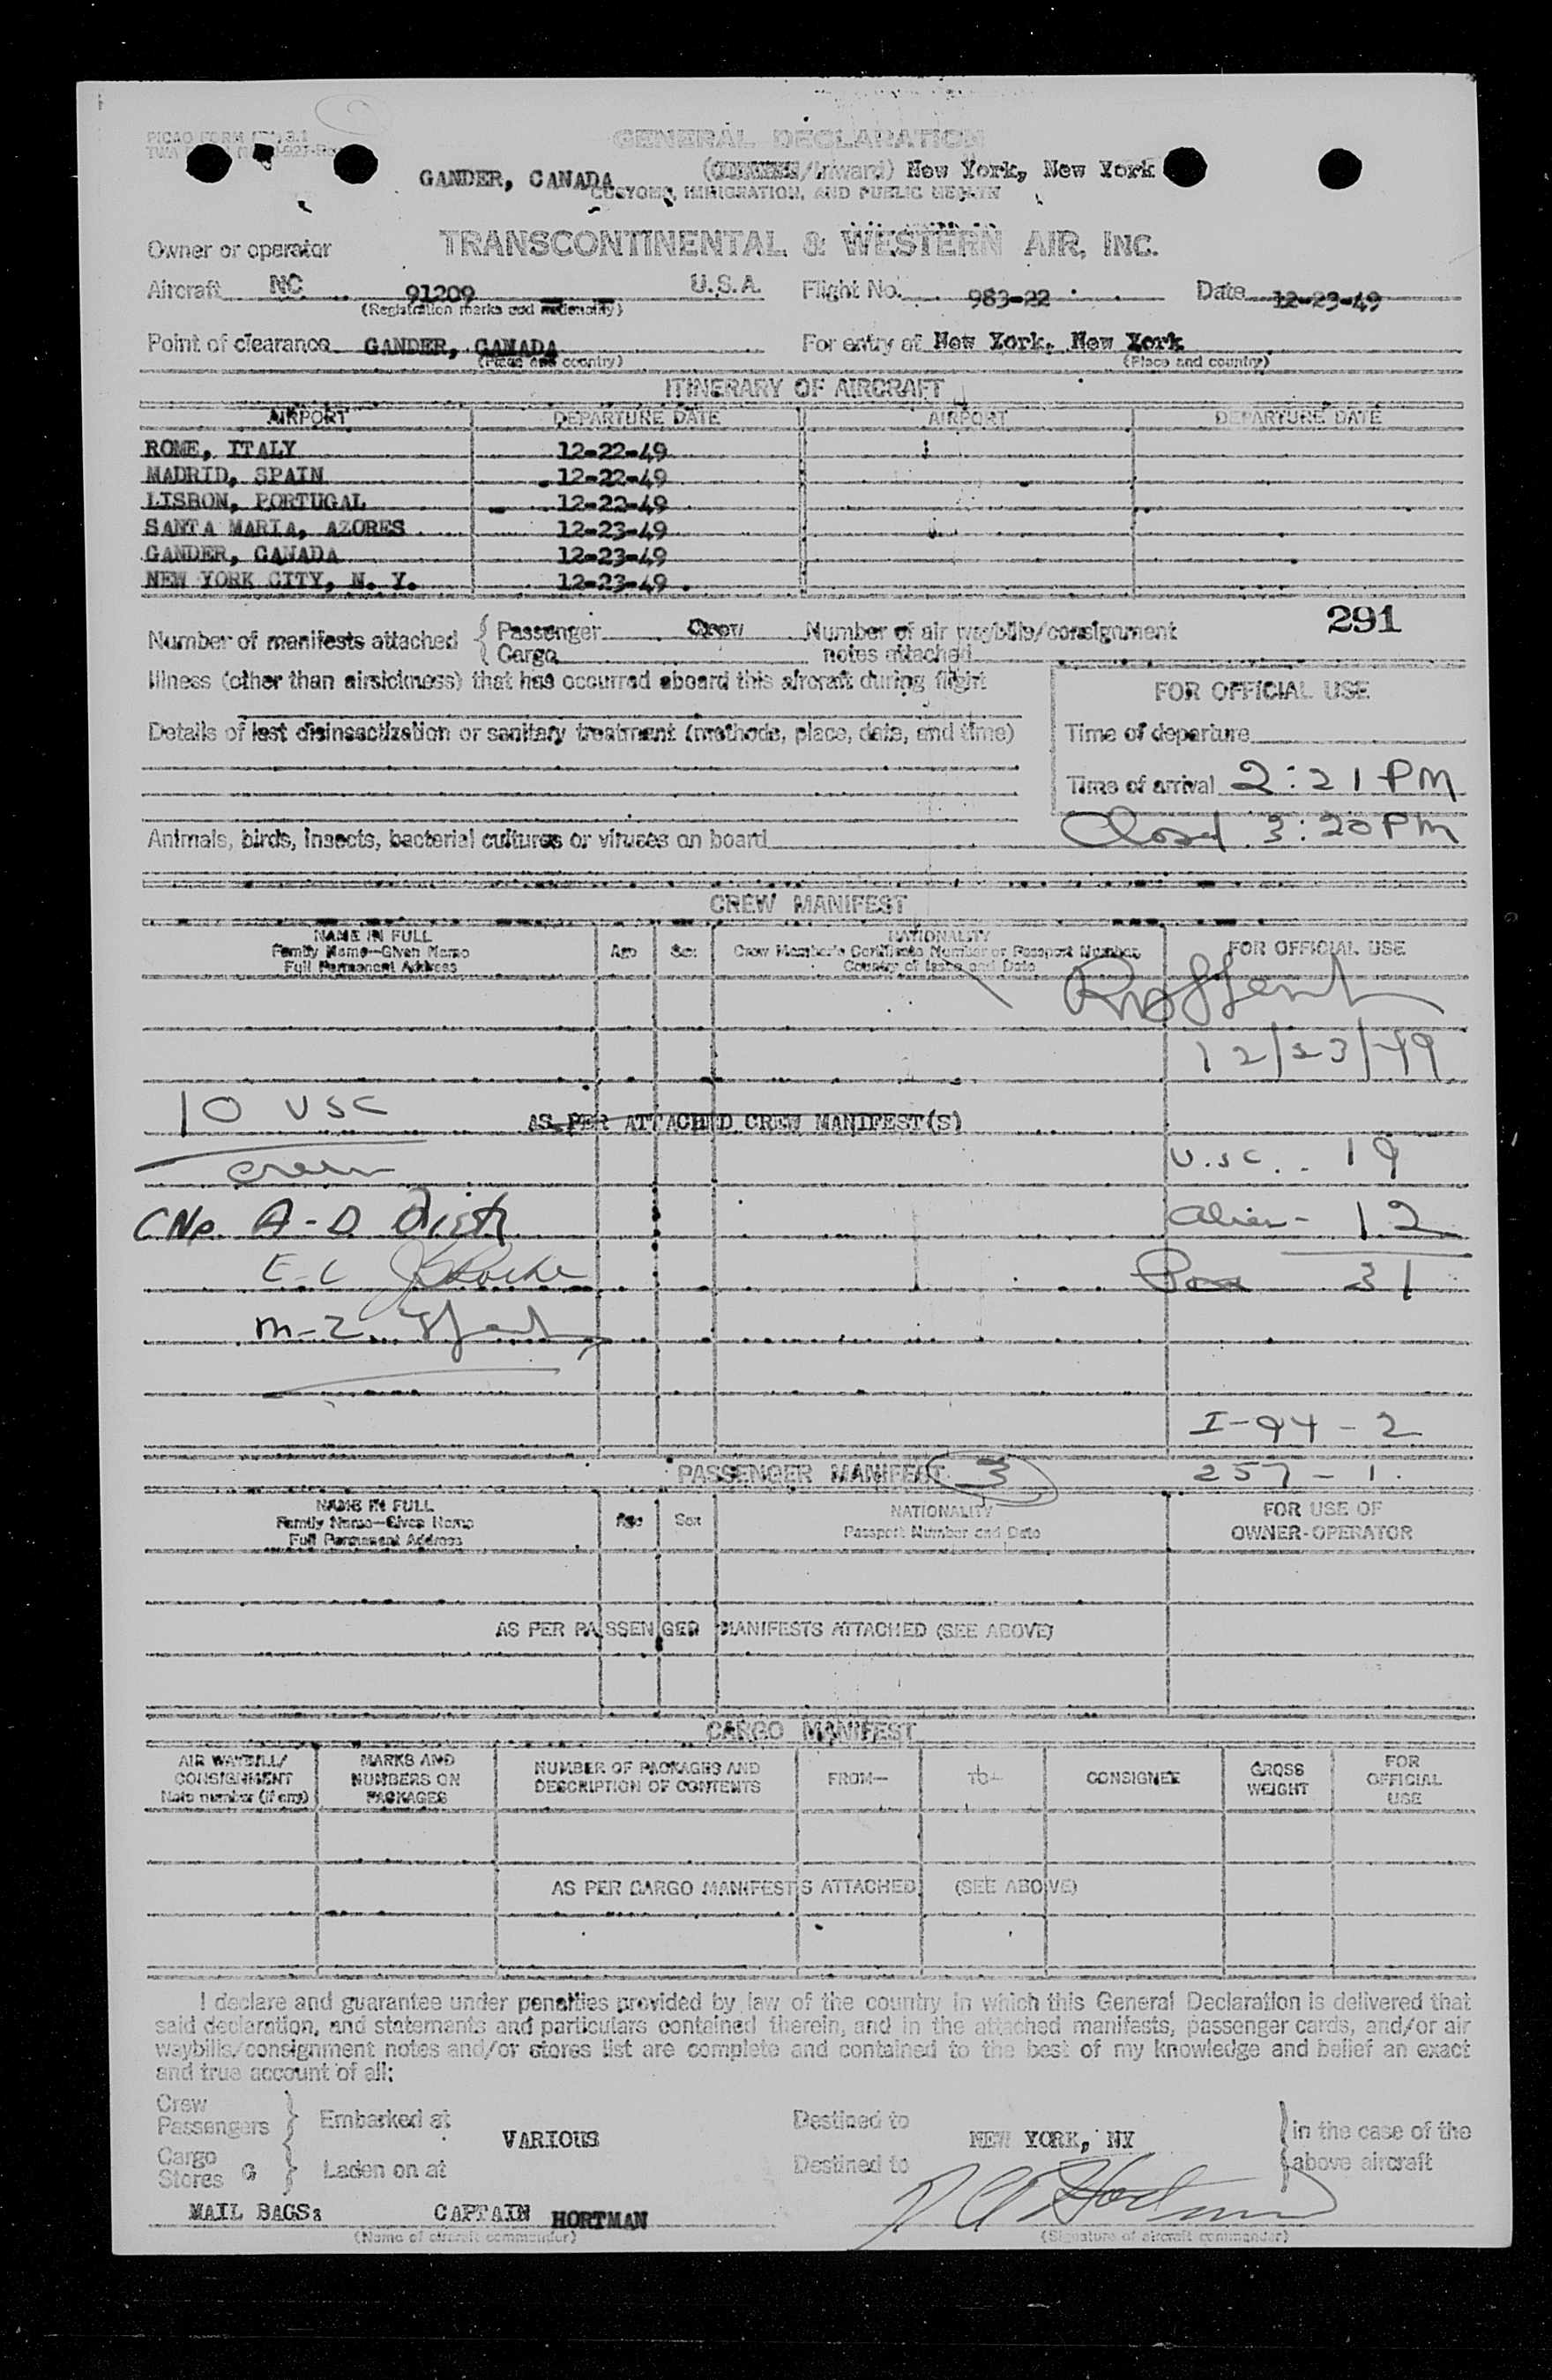 GENERAL DECLARATION
GANDER, CANADA (/Inward) New York, New York
CUSTOMS, IMMIGRATION, AND PUBLIC HEALTH
Owner or operator TRANSCONTINENTAL & WESTERN AIR, INC.
Aircraft NC 91209 U.S.A. Flight No. 983-22 Date 12-23-49
(Registration marks and nationality)
Point of clearance GANDER, CANADA For entry at New York, New York
(Place and country) (Place and country)
ITINERARY OF AIRCRAFT
AIRPORT DEPARTURE DATE AIRPORT DEPARTURE DATE
ROME, ITALY 12-22-49
MADRID, SPAIN 12-22-49
LISBON, PORTUGAL 12-22-49
SANTA MARIA, AZORES 12-23-49
GANDER, CANADA 12-23-49
NEW YORK CITY, N. Y. 12-23-49
291
Number of manifests attached { Passenger Crew Number of air waybills/consignment
Cargo notes attached
Illness (other than airsickness) that has occurred aboard this aircraft during flight
FOR OFFICIAL USE
Details of last disinsectization or sanitary treatment (methods, place, date, and time)
Time of departure
Time of arrival 2:21 PM
Closed 3:20 PM
Animals, birds, insects, bacterial cultures or viruses on board
CREW MANIFEST
NAME IN FULL
Family Name—Given Name
Full Permanent Address
Age Sex
NATIONALITY
Crew Member's Certificate Number or Passport Number,
Country of Issue and Date
FOR OFFICIAL USE
12/23/49
10 USC
AS PER ATTACHED CREW MANIFEST(S)
crew
U.S.C. - 19
A-D
alien - 12
E-L
Pax 31
M-Z
I-94 - 2
PASSENGER MANIFEST 3
257 - 1
NAME IN FULL
Family Name—Given Name
Full Permanent Address
Age Sex
NATIONALITY
Passport Number and Date
FOR USE OF
OWNER-OPERATOR
AS PER PASSENGER MANIFESTS ATTACHED (SEE ABOVE)
CARGO MANIFEST
AIR WAYBILL/
CONSIGNMENT
Note number (if any)
MARKS AND
NUMBERS ON
PACKAGES
NUMBER OF PACKAGES AND
DESCRIPTION OF CONTENTS
FROM— TO— CONSIGNEE
GROSS
WEIGHT
FOR
OFFICIAL
USE
AS PER CARGO MANIFESTS ATTACHED (SEE ABOVE)
I declare and guarantee under penalties provided by law of the country in which this General Declaration is delivered that
said declaration, and statements and particulars contained therein, and in the attached manifests, passenger cards, and/or air
waybills/consignment notes and/or stores list are complete and contained to the best of my knowledge and belief an exact
and true account of all:
Crew
Passengers } Embarked at VARIOUS Destined to NEW YORK, NY } in the case of the
Cargo
Stores G } Laden on at Destined to above aircraft
MAIL BAGS: CAPTAIN HORTMAN
(Name of aircraft commander) (Signature of aircraft commander)